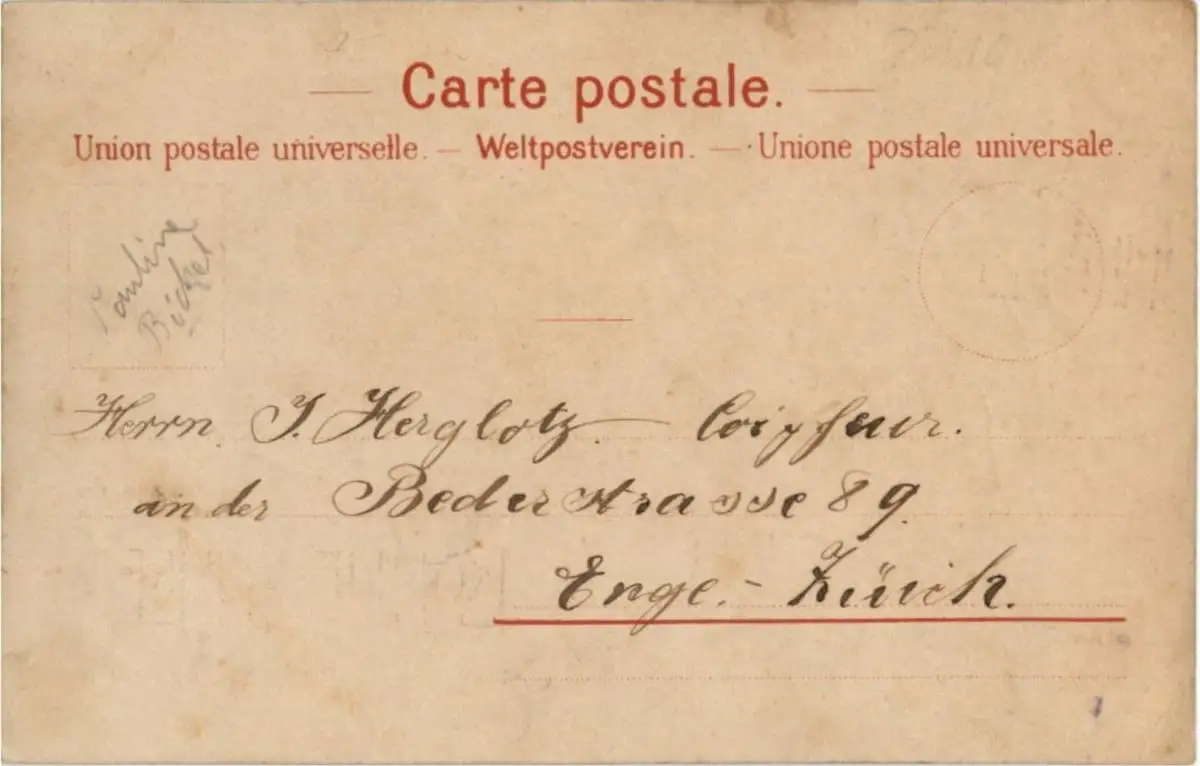 Carte postale.
Union postale universelle. — Weltpostverein. — Unione postale universale.
Pauline
Herrn J. Herglotz. — Coiffeur.
an der Bederstrasse 89.
Enge. - Zürich.